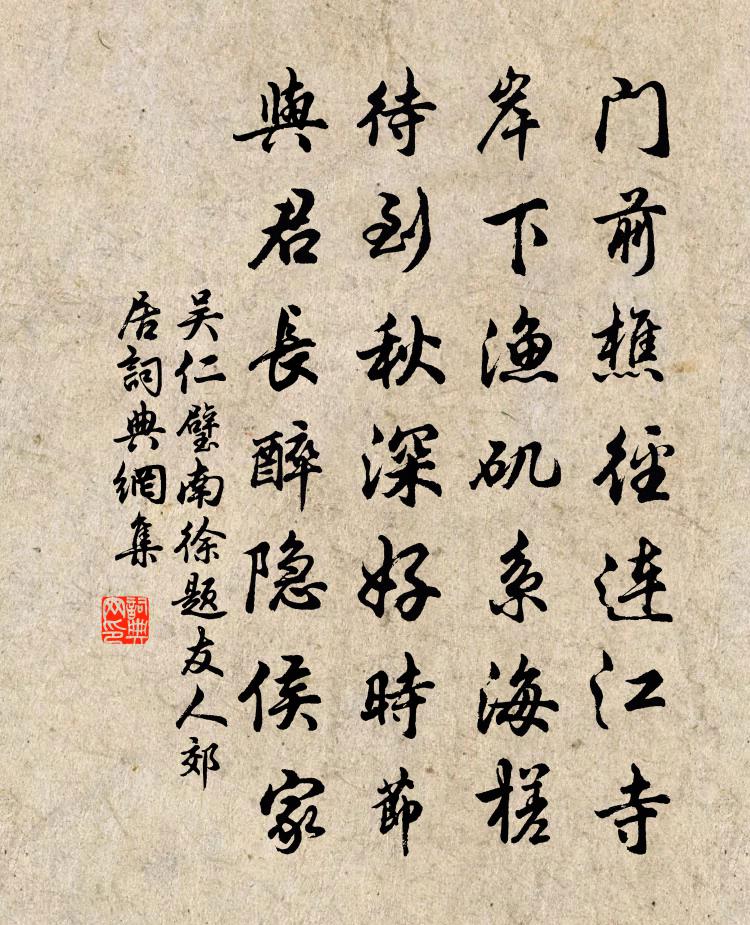 门前樵徑連江寺
岸下漁矶系海槎
待到秋深好時節
與君長醉隐侯家
吴仁璧南徐题友人郊
居詞典網集
詞典
网印